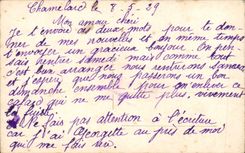 Chamelard le 8.5.29
Mon amour chéri
Je t'envoie ces deux mots, pour te don
ner de mes nouvelles et en même temps
t'envoyer un gracieux bonjour. On pen
sais rentrer samedi mais comme tout
s'est bien arrangé nous rentrerons samedi
j'espère que nous passerons un bon
dimanche ensemble pour enlever ce
cafard qui ne me quitte plus, vivement
la
Ne fais pas attention à l'écriture
car j'ai Georgette au près de moi
qui me fais